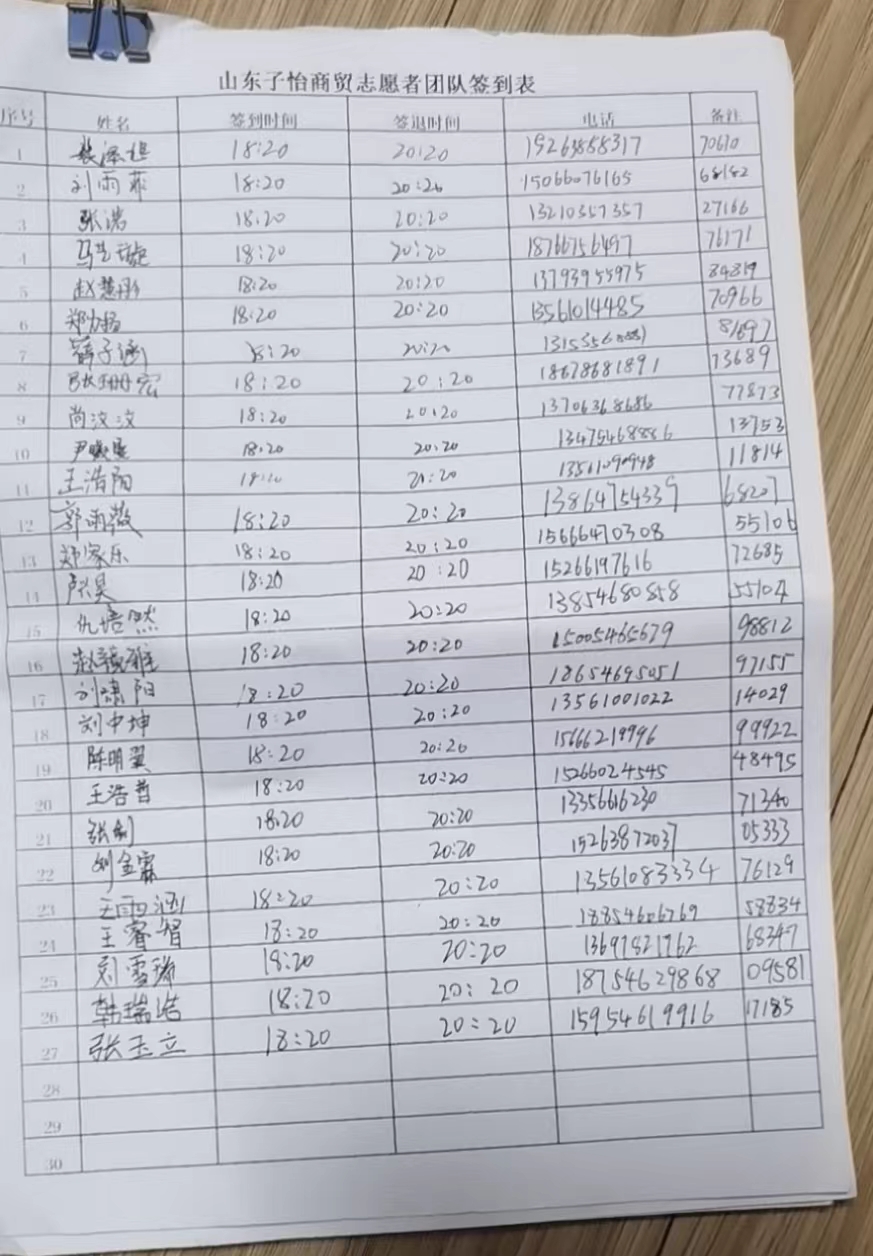 山东子怡商贸志愿者团队签到表
序号 姓名 签到时间 签退时间 电话 备注
1 18:20 20:20 70610
2 刘雨菲 18:20 20:20 15066076165 68182
3 张浩 18:20 20:20 13210357357 27166
4 18:20 20:20 18766756497 76171
5 赵慧彤 18:20 20:20 13793955975 84819
6 郑力扬 18:20 20:20 13561014485 70966
7 薛子涵 18:20 20:20
8 18:20 20:20 18678681891 73689
9 尚汶汶 18:20 20:20 13706368686 77873
10 18:20 20:20 13475468886 13753
11 王浩阳 20:20 11814
12 郭雨薇 18:20 20:20 13864754339 68207
13 郑家乐 18:20 20:20 15666470308 55106
14 18:20 20:20 15266197616 72685
15 仇培然 18:20 20:20 13854680858 55104
16 18:20 20:20 15005465679 98812
17 刘肃阳 18:20 20:20 18654695051 97155
18 刘中坤 18:20 20:20 13561001022 14029
19 陈明翼 18:20 20:20 15666219996 99922
20 王浩哲 18:20 20:20 15266024545 48495
21 张剑 18:20 20:20 13356616230 71340
22 刘金霖 18:20 20:20 15263872037 05333
23 王雨涵 18:20 20:20 13561083334 76129
24 王睿智 18:20 20:20 18854606769 58834
25 刘雪瑞 18:20 20:20 13697821762 68347
26 韩瑞浩 18:20 20:20 18754629868 09581
27 张玉立 18:20 20:20 15954619916 17185
28
29
30